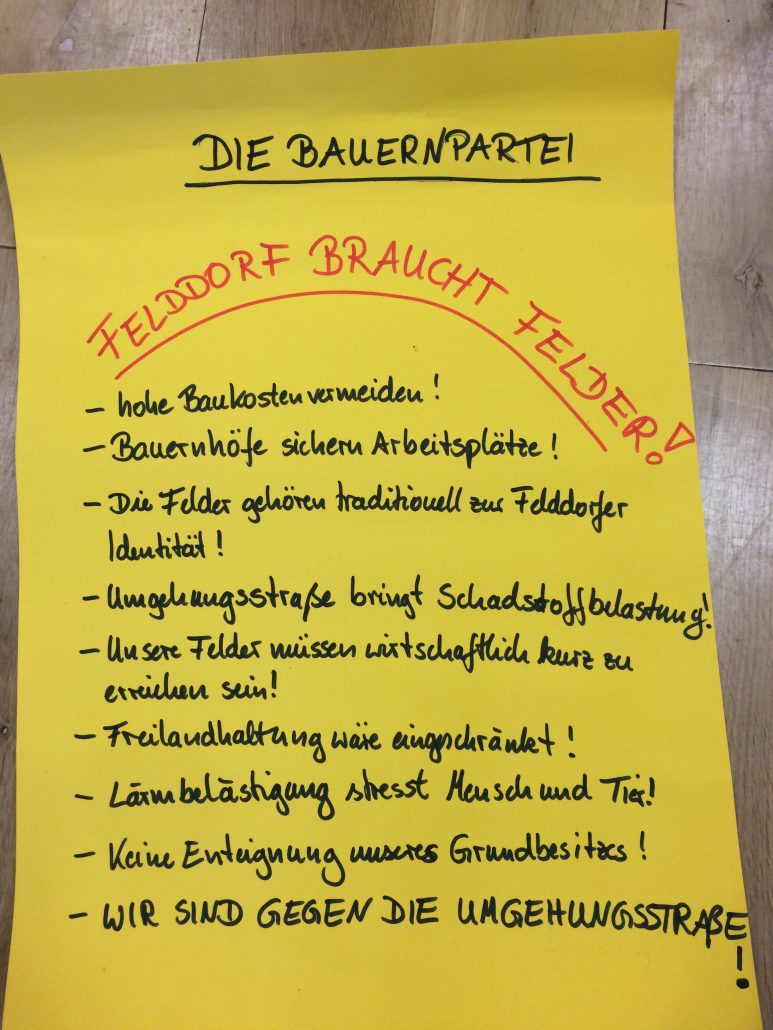 DIE BAUERNPARTEI
FELDDORF BRAUCHT FELDER!
- hohe Baukosten vermeiden!
- Bauernhöfe sichern Arbeitsplätze!
- Die Felder gehören traditionell zur Felddorfer
Identität!
- Umgehungsstraße bringt Schadstoffbelastung!
- Unsere Felder müssen wirtschaftlich kurz zu
erreichen sein!
- Freilandhaltung wäre eingeschränkt!
- Lärmbelästigung stresst Mensch und Tier!
- Keine Enteignung unseres Grundbesitzes!
- WIR SIND GEGEN DIE UMGEHUNGSSTRAßE
!